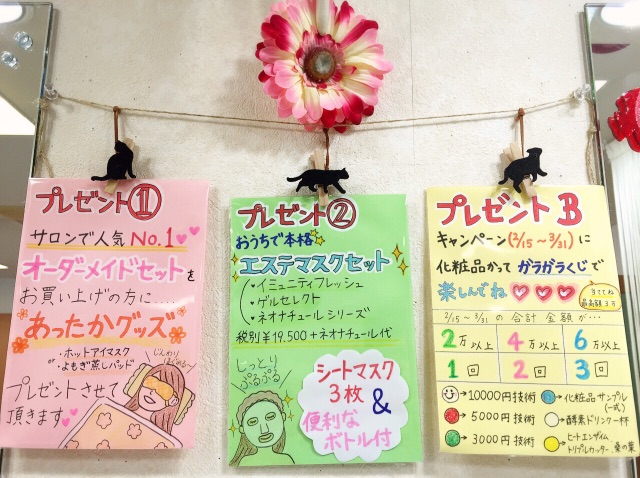 プレゼント①
サロンで人気 No.1
オーダーメイドセットを
お買い上げの方に....
あったかグッズ
・ホットアイマスク
or
・よもぎ蒸しパッド
じんわり
プレゼントさせて
頂きます
プレゼント②
おうちで本格
エステマスクセット
・イミュニティフレッシュ
・ゲルセレクト
・ネオナチュールシリーズ
税別¥19,500+ネオナチュール代
しっとり
ぷるぷる
シートマスク
3枚 &
便利な
ボトル付
プレゼントB
キャンペーン(2/15~3/31)に
化粧品かって ガラガラくじで
楽しんでね
当ててね
最高額3万
2/15~3/31 の合計金額が...
2万以上 4万以上 6万以上
1回 2回 3回
→10000円技術 →化粧品サンプル(一式)
→5000円技術 →酵素ドリンク一杯
→3000円技術 →ヒートエンザイム
トリプルカッター、桑の葉